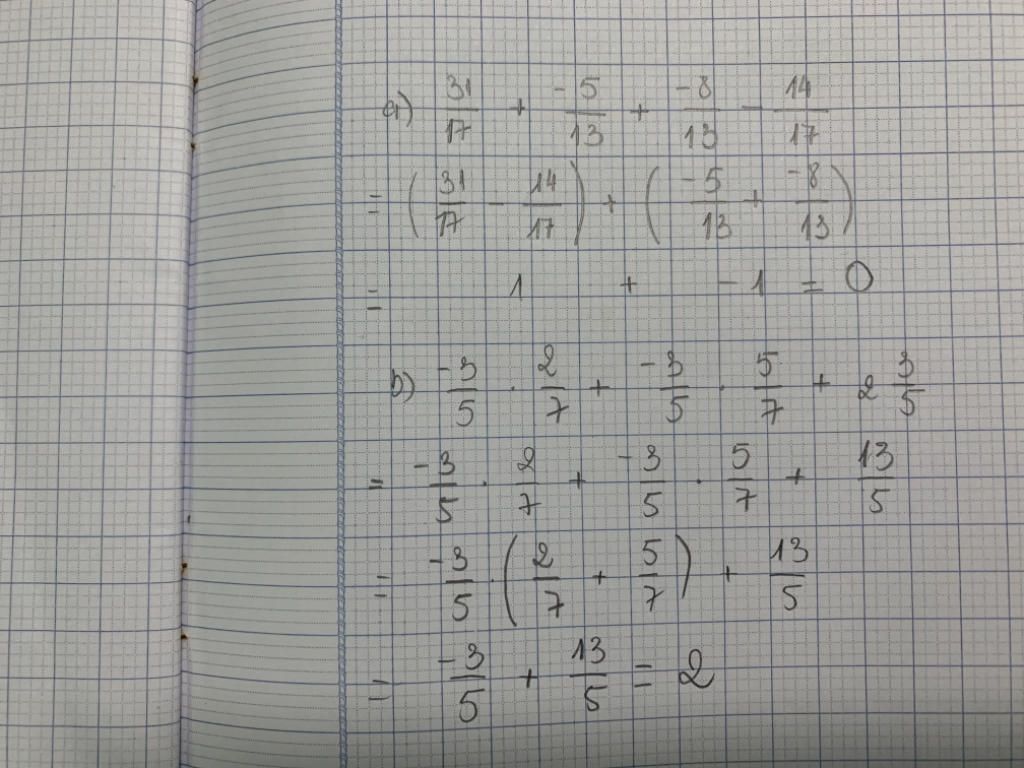 a) 31/17 + -5/13 + -8/13 - 14/17
= (31/17 - 14/17) + (-5/13 + -8/13)
= 1 + -1 = 0
b) -3/5 . 2/7 + -3/5 . 5/7 + 2 3/5
= -3/5 . 2/7 + -3/5 . 5/7 + 13/5
= -3/5 . (2/7 + 5/7) + 13/5
= -3/5 + 13/5 = 2